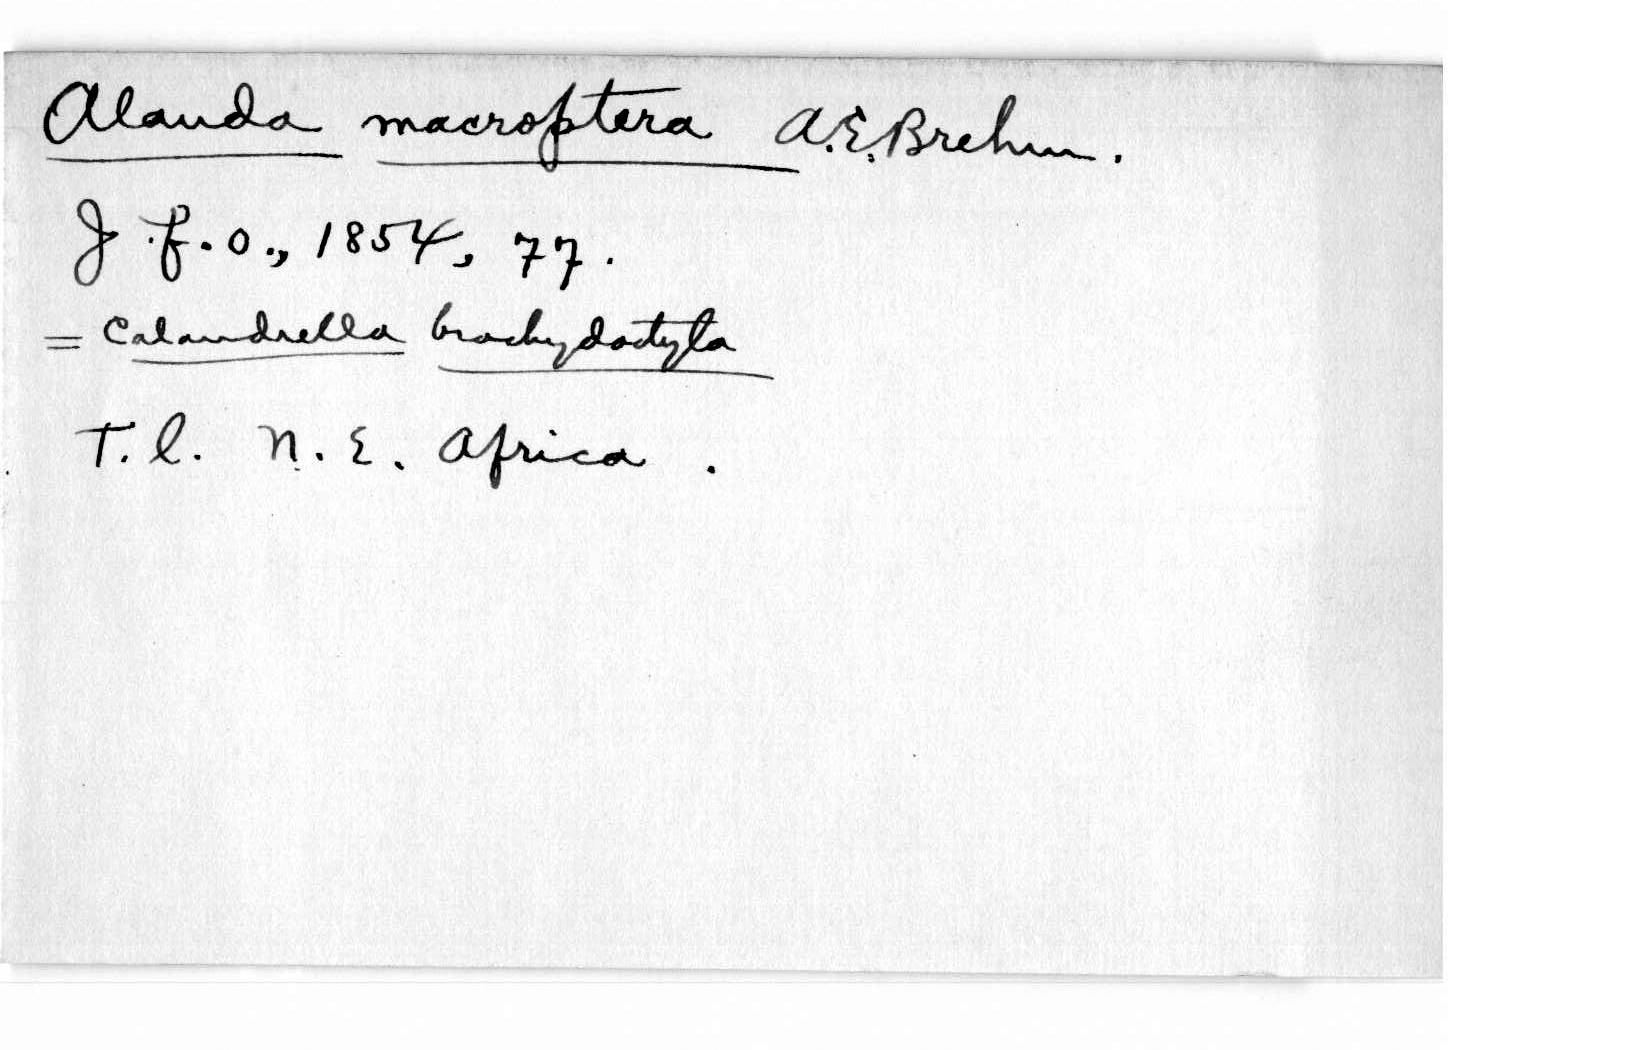 Alauda macroptera A.E. Brehm.
J.f.O., 1854, 77.
= Calandrella brachydactyla
T.l. N.E. Africa.